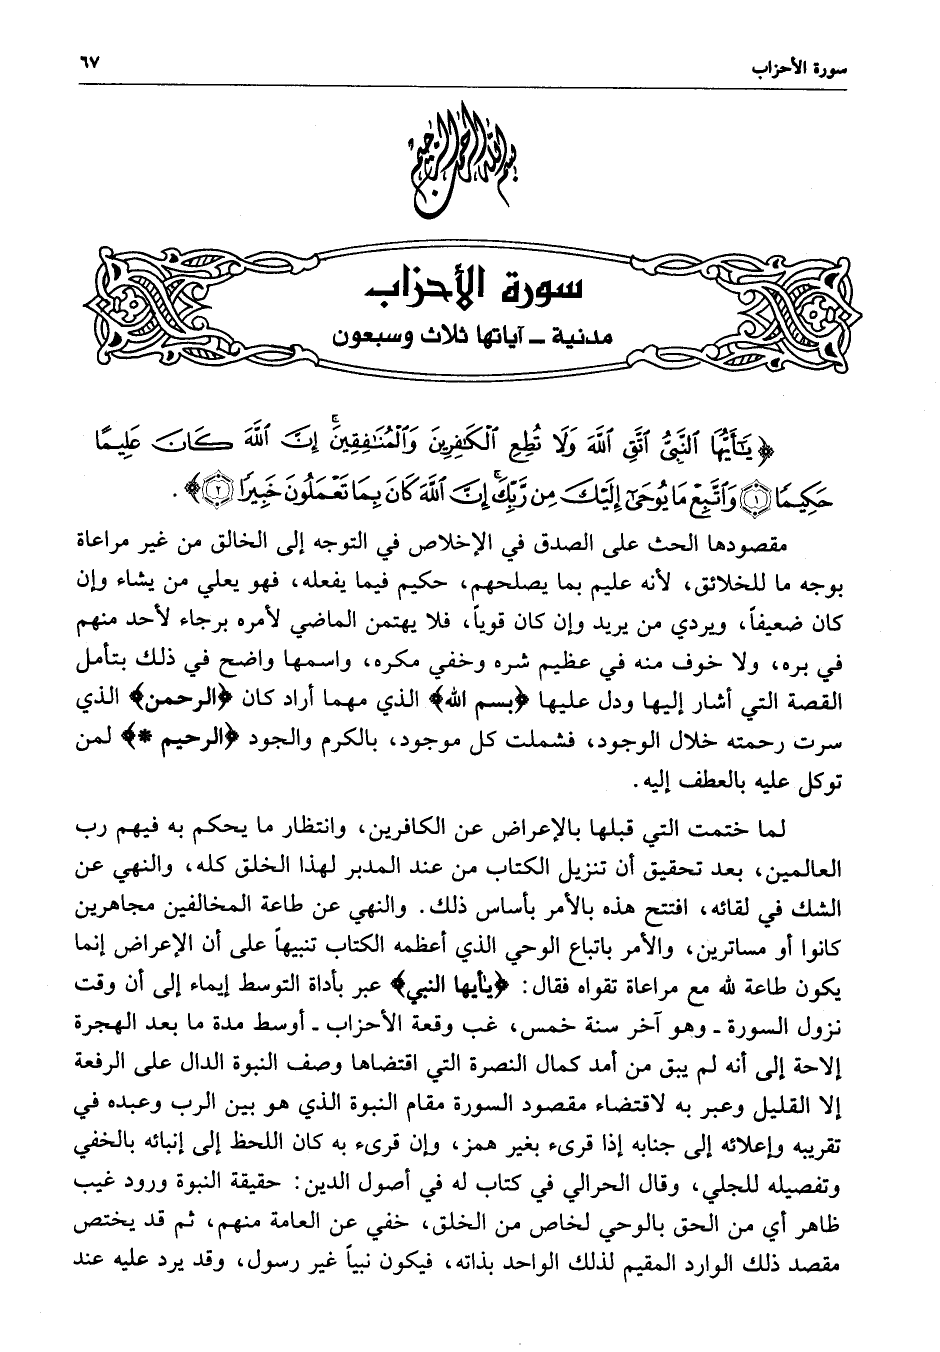 سورة الأحزاب
٦٧
بسم الله الرحمن الرحيم
سورة الأحزاب
مدنية ــ آياتها ثلاث وسبعون
﴿يَٰٓأَيُّهَا ٱلنَّبِىُّ ٱتَّقِ ٱللَّهَ وَلَا تُطِعِ ٱلْكَٰفِرِينَ وَٱلْمُنَٰفِقِينَۚ إِنَّ ٱللَّهَ كَانَ عَلِيمًا
حَكِيمًا ﴿١﴾ وَٱتَّبِعْ مَا يُوحَىٰٓ إِلَيْكَ مِن رَّبِّكَۚ إِنَّ ٱللَّهَ كَانَ بِمَا تَعْمَلُونَ خَبِيرًا ﴿٢﴾﴾ .
مقصودها الحث على الصدق في الإخلاص في التوجه إلى الخالق من غير مراعاة
بوجه ما للخلائق، لأنه عليم بما يصلحهم، حكيم فيما يفعله، فهو يعلي من يشاء وإن
كان ضعيفاً، ويردي من يريد وإن كان قوياً، فلا يهتمن الماضي لأمره برجاء لأحد منهم
في بره، ولا خوف منه في عظيم شره وخفي مكره، واسمها واضح في ذلك بتأمل
القصة التي أشار إليها ودل عليها ﴿بسم الله﴾ الذي مهما أراد كان ﴿الرحمن﴾ الذي
سرت رحمته خلال الوجود، فشملت كل موجود، بالكرم والجود ﴿الرحيم *﴾ لمن
توكل عليه بالعطف إليه.
لما ختمت التي قبلها بالإعراض عن الكافرين، وانتظار ما يحكم به فيهم رب
العالمين، بعد تحقيق أن تنزيل الكتاب من عند المدبر لهذا الخلق كله، والنهي عن
الشك في لقائه، افتتح هذه بالأمر بأساس ذلك. والنهي عن طاعة المخالفين مجاهرين
كانوا أو مساترين، والأمر باتباع الوحي الذي أعظمه الكتاب تنبيهاً على أن الإعراض إنما
يكون طاعة لله مع مراعاة تقواه فقال: ﴿يأيها النبي﴾ عبر بأداة التوسط إيماء إلى أن وقت
نزول السورة ـ وهو آخر سنة خمس، غب وقعة الأحزاب ـ أوسط مدة ما بعد الهجرة
إلاحة إلى أنه لم يبق من أمد كمال النصرة التي اقتضاها وصف النبوة الدال على الرفعة
إلا القليل وعبر به لاقتضاء مقصود السورة مقام النبوة الذي هو بين الرب وعبده في
تقريبه وإعلائه إلى جنابه إذا قرىء بغير همز، وإن قرىء به كان اللحظ إلى إنبائه بالخفي
وتفصيله للجلي، وقال الحرالي في كتاب له في أصول الدين: حقيقة النبوة ورود غيب
ظاهر أي من الحق بالوحي لخاص من الخلق، خفي عن العامة منهم، ثم قد يختص
مقصد ذلك الوارد المقيم لذلك الواحد بذاته، فيكون نبياً غير رسول، وقد يرد عليه عند